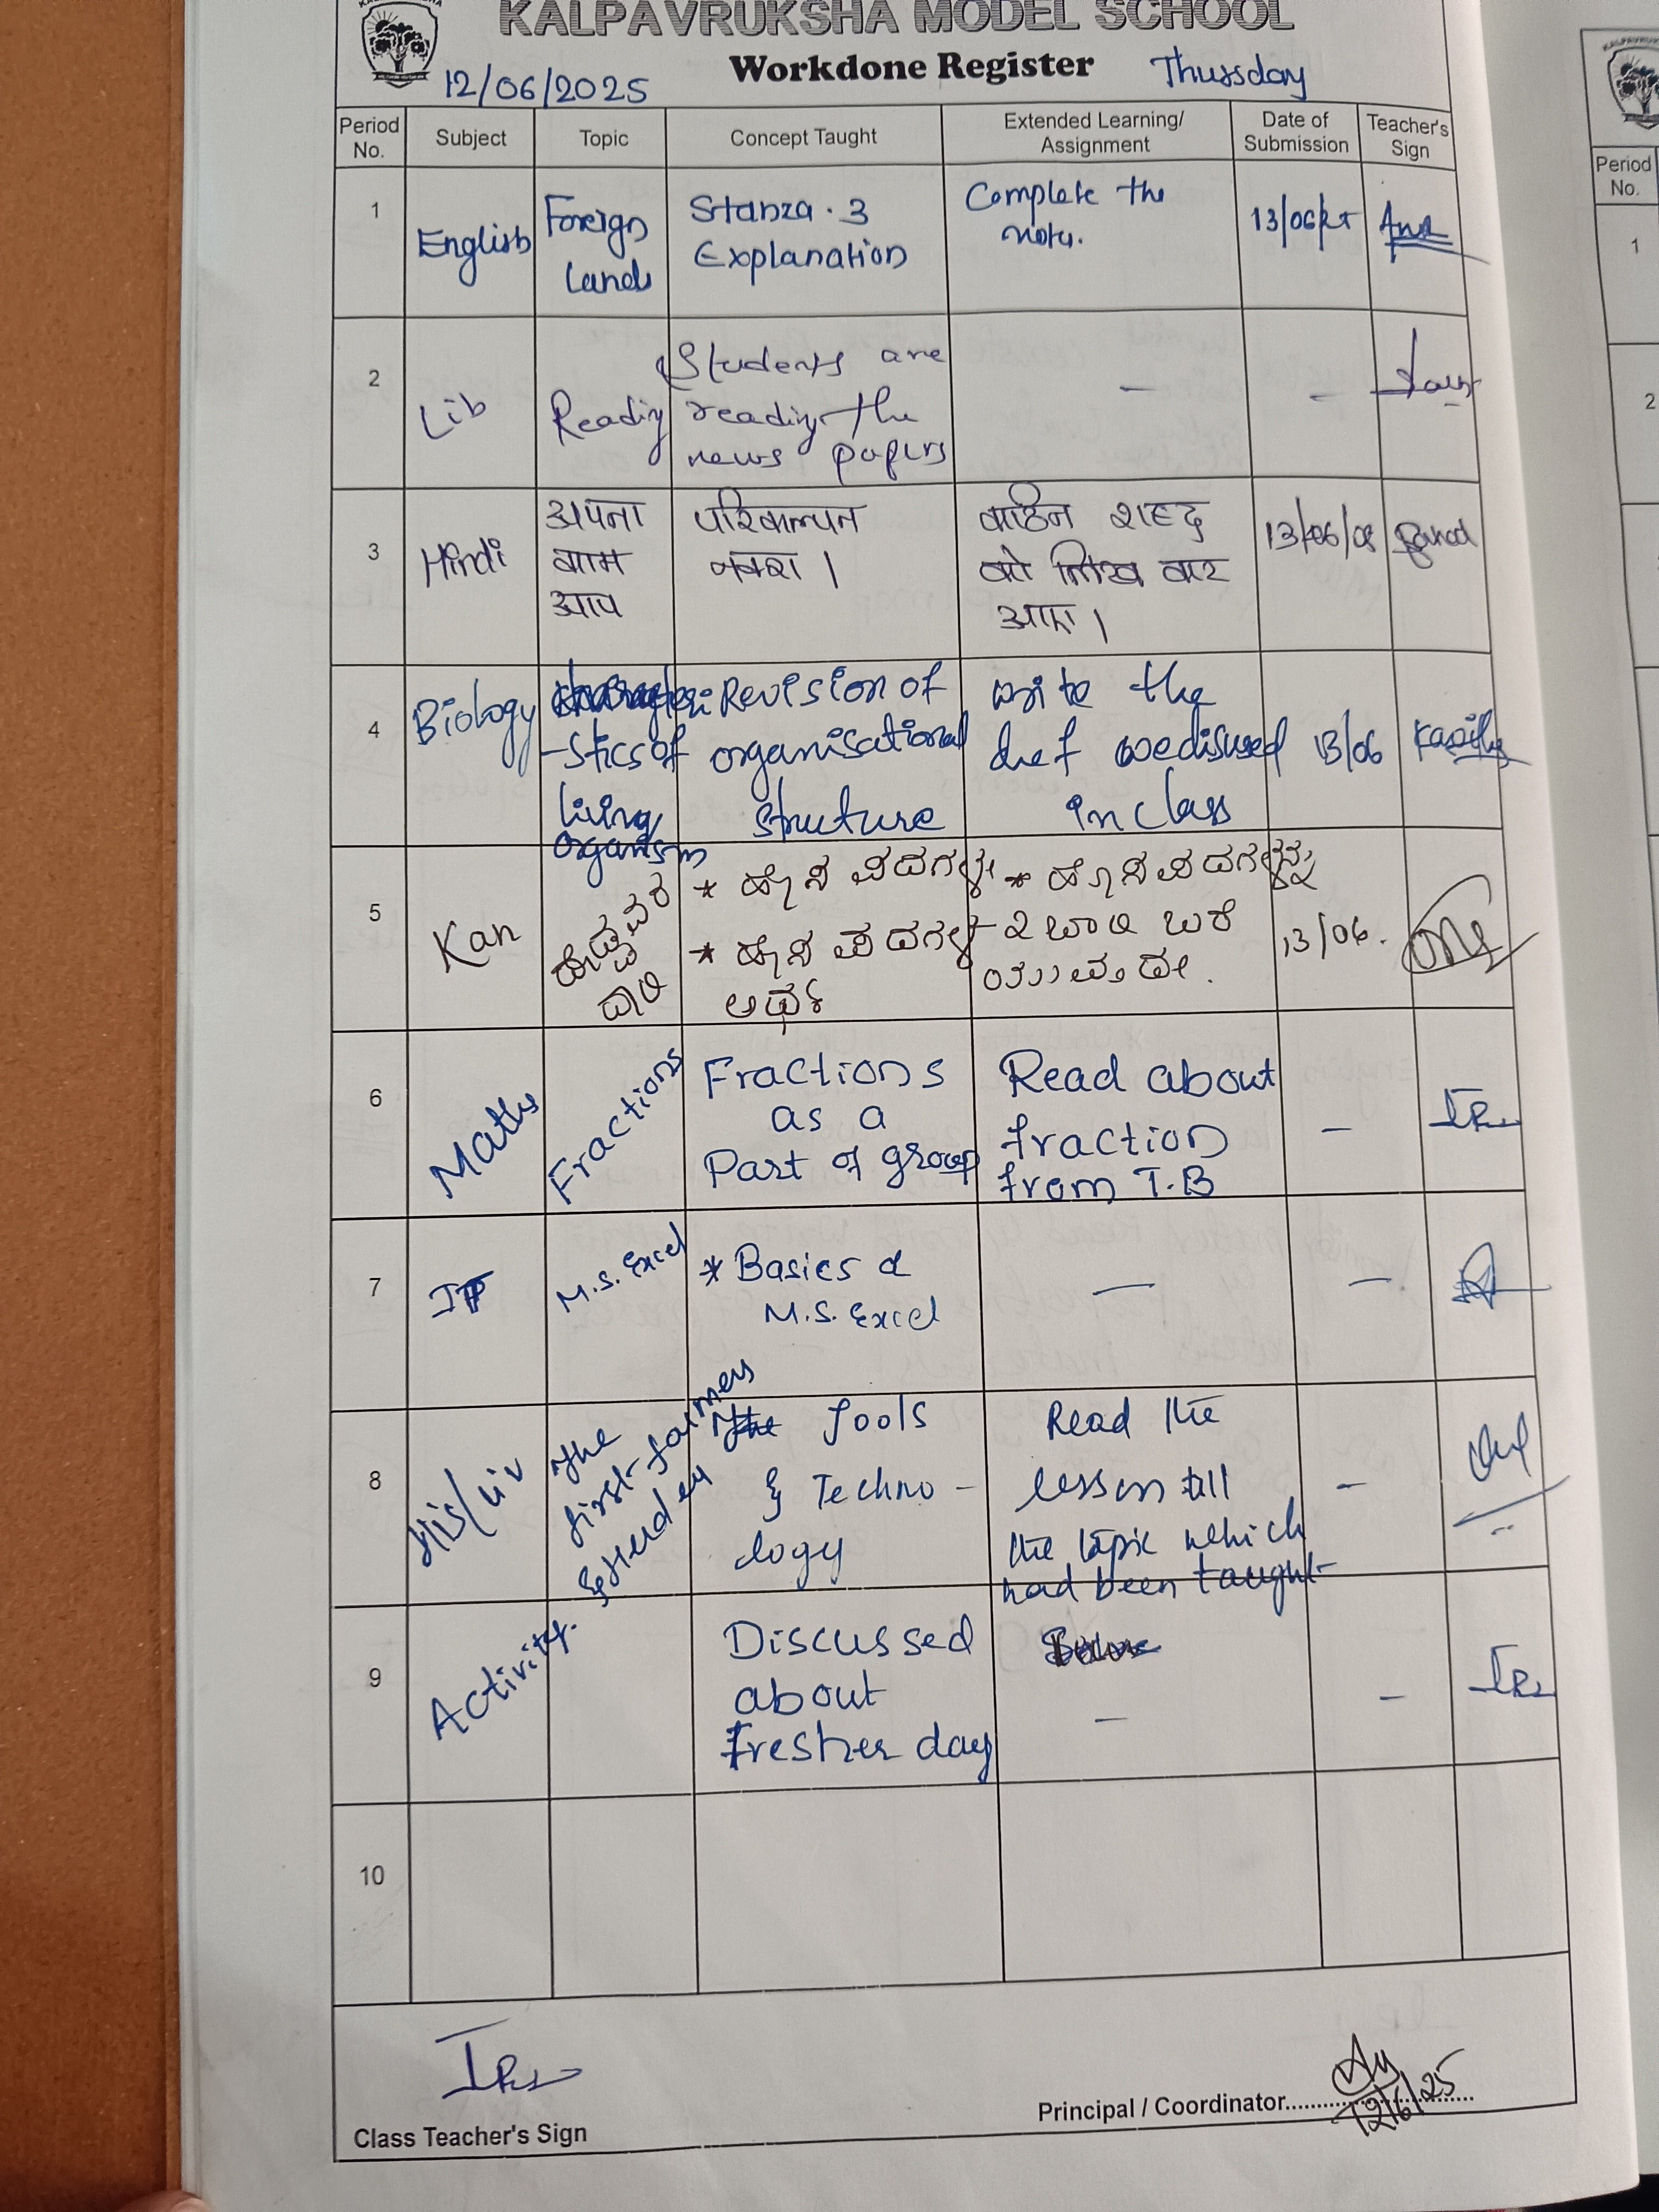 KALPAVRUKSHA MODEL SCHOOL
Workdone Register
12/06/2025
Thursday
Period No.
Subject
Topic
Concept Taught
Extended Learning/
Assignment
Date of
Submission
Teacher's
Sign
1
English
Foreign
Lands
Stanza . 3
Explanation
Complete the
notes.
2
Lib
Reading
Students are
reading the
news papers
-
-
3
Hindi
अपना
काम
आप
परिकल्पन
नक्शा ।
काठिन शब्द
को लिख कर
आए ।
4
Biology
-stics of
living
organism
Revision of
organisational
structure
write the
def we disused
in class
13/06
5
Kan
* ಹೊಸ ಪದಗಳು
* ಹೊಸ ಪದಗಳ
ಅರ್ಥ
* ಹೊಸ ಪದಗಳನ್ನು
೨ ಬಾರಿ ಬರೆ
ಯುವುದು.
13/06.
6
Maths
Fractions
Fractions
as a
Part of group
Read about
fraction
from T.B
-
7
IT
M.S. Excel
* Basics of
M.S. Excel
-
-
8
His/civ
The
first farmers
& Herders
Tools
& Techno -
logy
Read the
lesson till
the topic which
had been taught
-
9
Activity.
Discussed
about
fresher day
-
-
10
Class Teacher's Sign
Principal / Coordinator
12/6/25
Period
No.
1
2